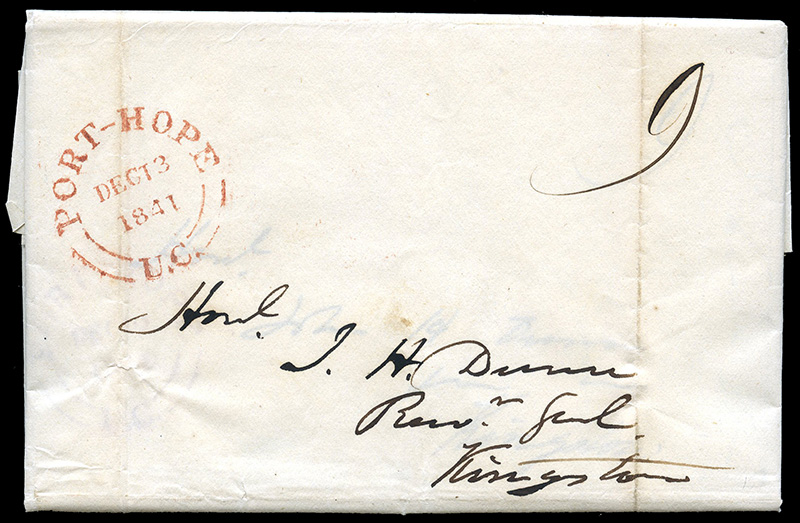 PORT-HOPE
DEC 13
1841
U.C.
9
Honl.
J. H. Dunn
Recvr Genl.
Kingston